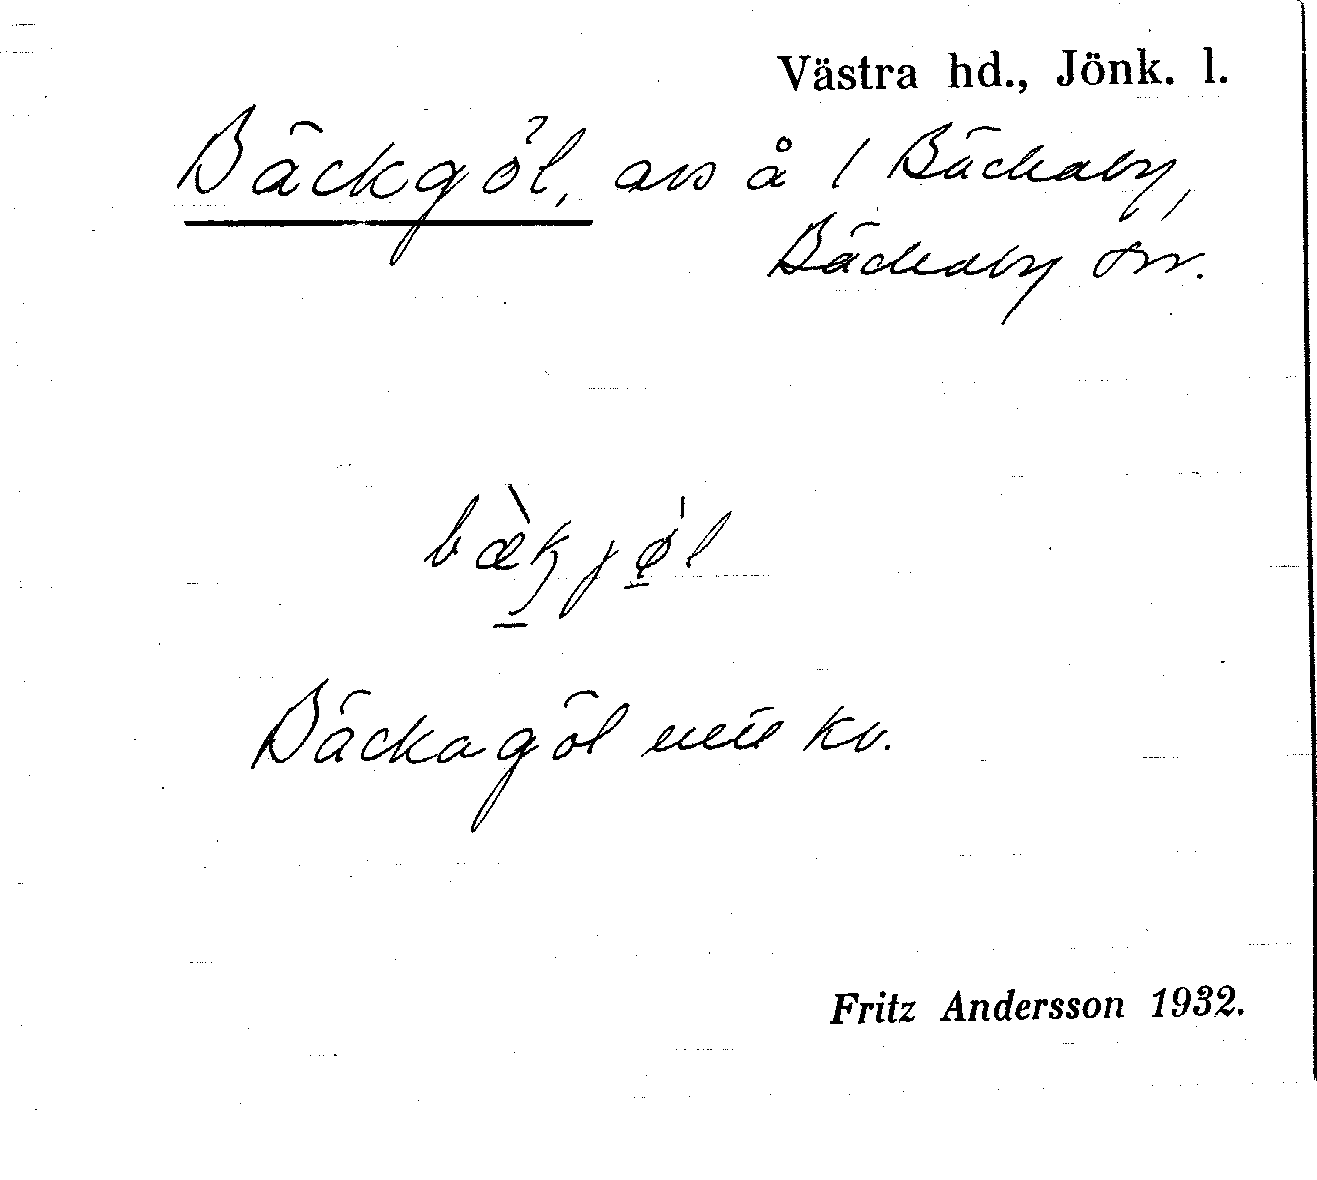 Västra hd., Jönk. l.
Bäckgöl, avs å 1 Bäckaby,
Bäckaby sn.
bæ̀kjø̀l
Bäckagöl kv.
Fritz Andersson 1932.